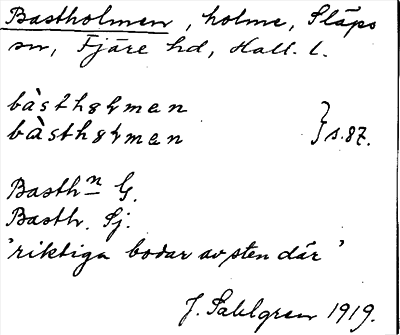 Bastholmen, holme, Släps
sn, Fjäre hd, Hall. l.
bàsthɷɫmen
bàsthɷɫmen } s. 87.
Basthn G.
Basth. Sj.
'riktiga bodar av sten där'
J. Sahlgren 1919.